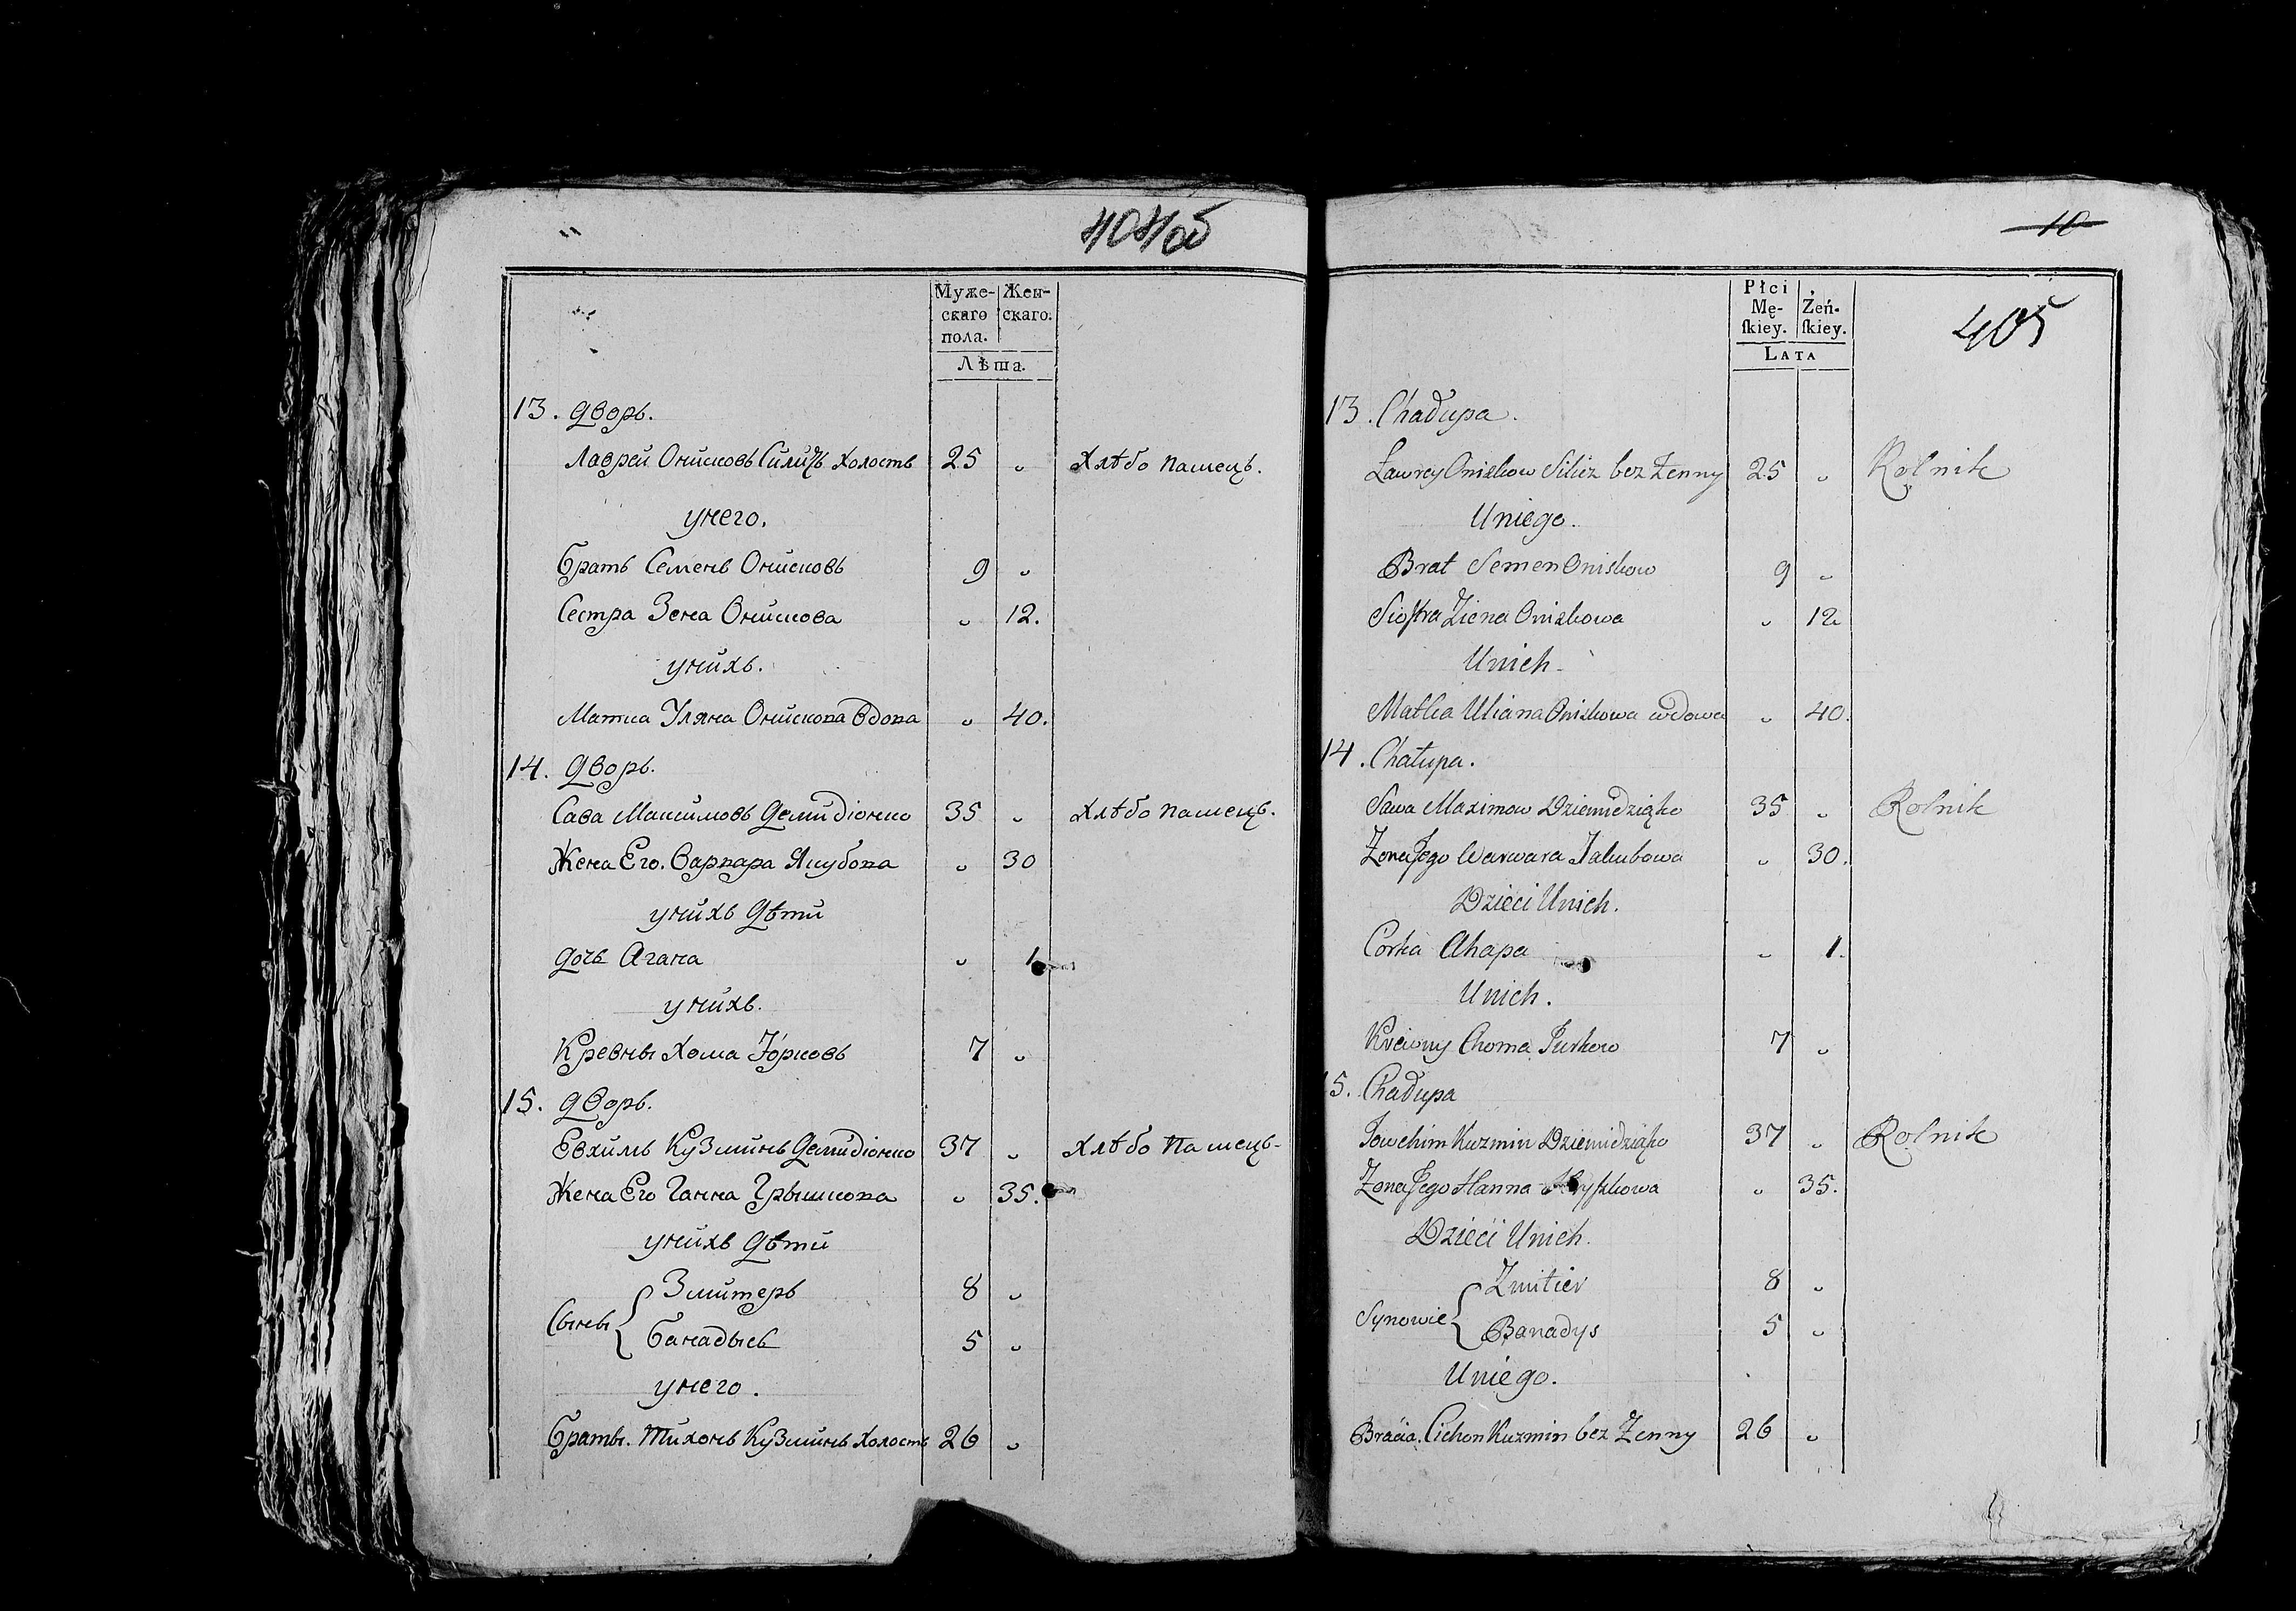 404об
Муже-
скаго
пола.
Жен-
скаго.
Лѣта.
13. дворъ.
Лаврей Онисковъ Силичъ холостъ 25 „ Хлѣбо пашецъ.
унего.
братъ Семенъ Онисковъ 9 „
Сестра Зена Онискова „ 12.
унихъ.
Матка Уляна Онискова вдова „ 40.
14. дворъ.
Сава Максимовъ Демидіонко 35 „ Хлѣбо пашецъ.
Жена Его. Варвара Якубова „ 30
унихъ дѣти
дочъ Агапа „ 1
унихъ.
Кревны Хома Юрковъ 7 „
15. дворъ.
Евхимъ Кузминъ Демидіонко 37 „ Хлѣбо пашецъ-
Жена Его Ганна Грышкова „ 35.
унихъ дѣти
Сыны { Змитеръ 8 „
Банадысь 5 „
унего.
браты. Тихонъ Кузминъ холостъ 26 „
10
405
Płci
Mę-
ſkiey.
Żeń-
ſkiey.
LATA
13. Chadupa.
Ławrey Oniskow Silicz bez Zenny 25 „ Rolnik
Uniego.
Brat Semen Oniskow 9 „
Siostra Ziena Oniskowa „ 12
Unich-
Matka Uliana Oniskowa wdowa „ 40.
14. Chatupa.
Sawa Maximow Dziemidziąko 35 „ Rolnik
Zona Jego Warwara Jakubowa „ 30.
Dzieci Unich.
Corka Ahapa „ 1.
Unich.
Krewny Choma Jurkow 7 „
15. Chadupa
Jowchim Kuzmin Dziemidziąko 37 „ Rolnik
Zona Jego Hanna Hryszkowa „ 35.
Dzieci Unich.
Synowie { Zmitier 8 „
Banadys 5 „
Uniego.
Bracia. Cichon Kuzmin bez Zenny 26 „